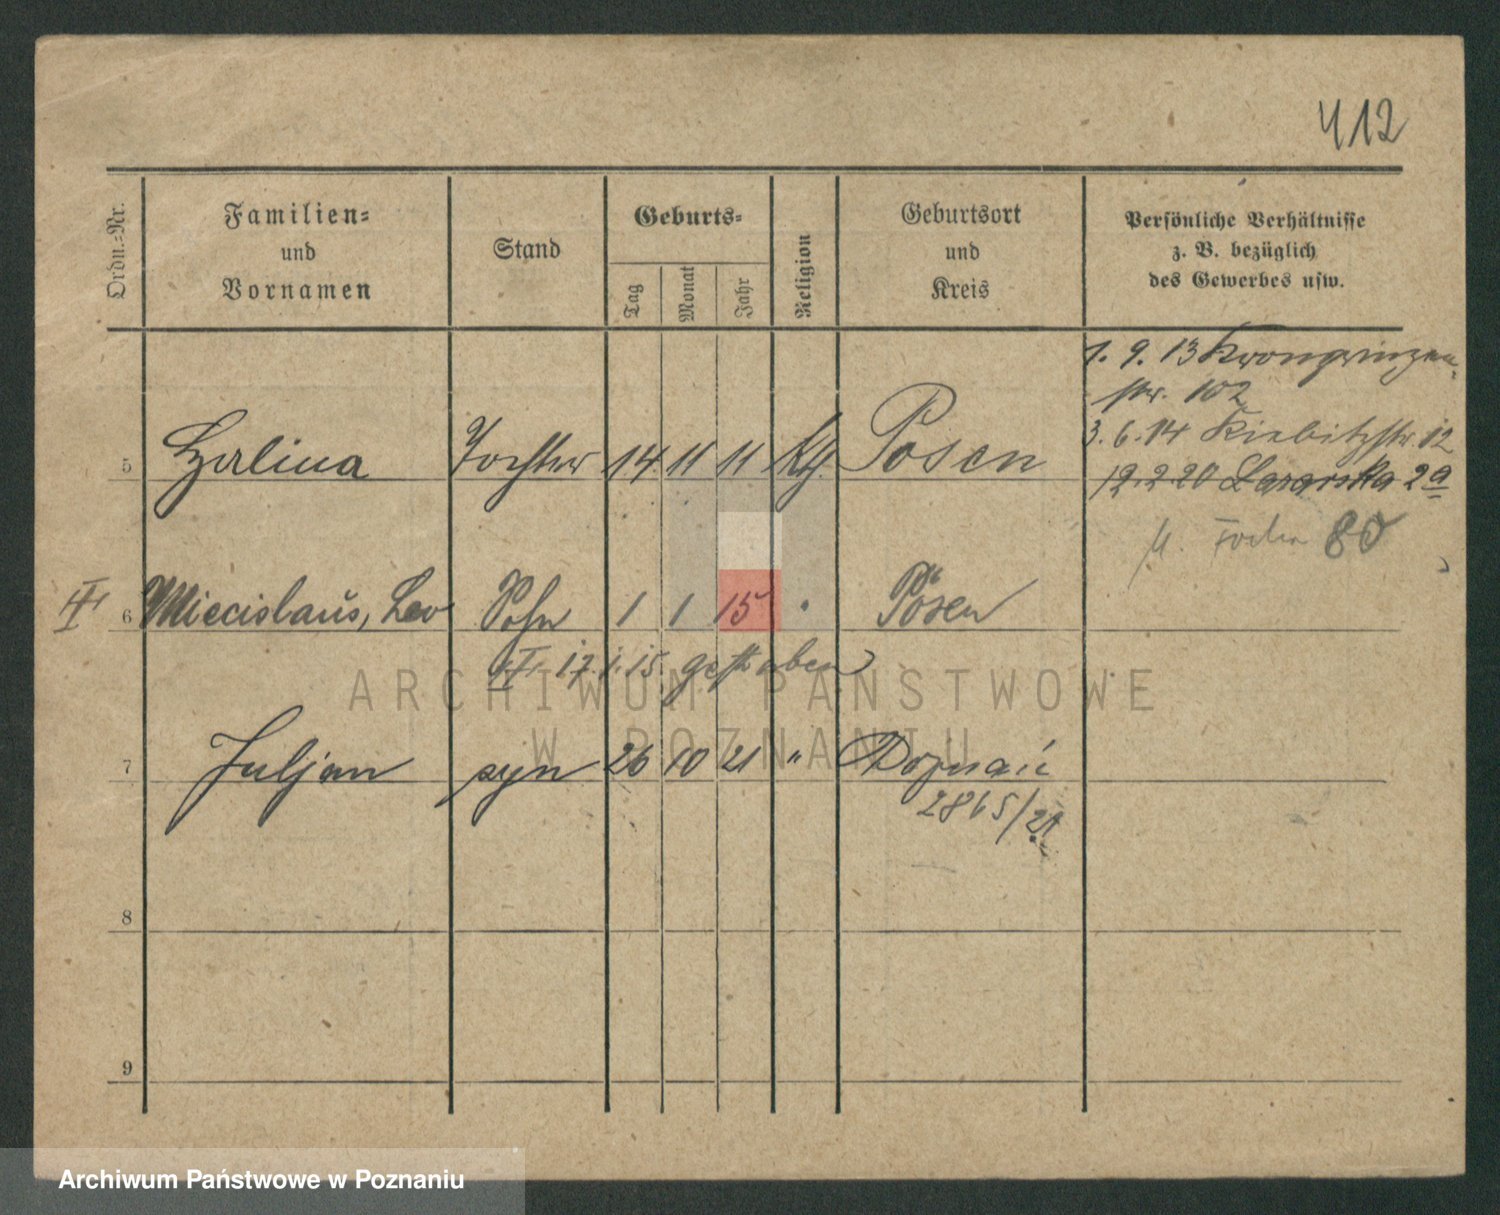 412
Ordn.-Nr.
Familien-
und
Vornamen
Stand
Geburts-
Tag
Monat
Jahr
Religion
Geburtsort
und
Kreis
Persönliche Verhältnisse
z. B. bezüglich
des Gewerbes usw.
1. 9. 13 Kronprinzen-
str. 102
3. 6. 14 Kiebitzstr. 12
5 Halina Tochter 14 11 11 Kth. Posen
12. 2. 20 Lazarska 2a
80
6 Miecislaus, Leo Sohn 1 1 15 Posen
17. 1. 15. gestorben
ARCHIWUM PAŃSTWOWE
W POZNANIU
7 Juljan syn 26 10 21 " Poznań
2865/21
8
9
Archiwum Państwowe w Poznaniu